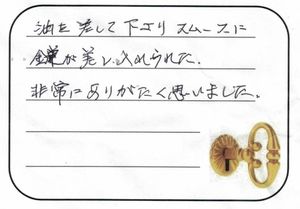 油を差して下さりスムースに
鍵が差し込れられた.
非常にありがたく思いました.